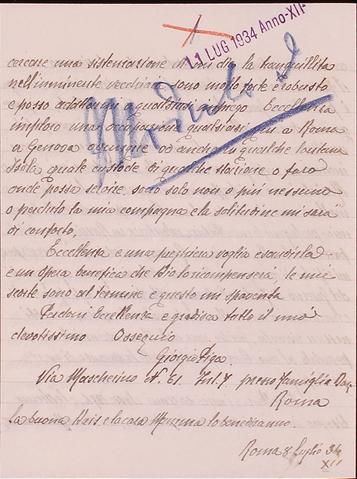 11 LUG 1934 Anno XII
cercare una sistemazione che mi dia la tranquillità
nell'imminente vecchiaia sono molto forte e robusto
e posso adattarmi a qualsiasi impiego Eccellenza
imploro una occupazione qualsiasi qui a Roma
a Genova ovunque od anche in qualche lontana
Isola quale custode di qualche stazione o faro
onde possa servire, sono solo non o più nessuno
o perduto la mia compagna e la solitudine mi sarà
di conforto.
Eccellenza e una preghiera voglia esaudirla
e un opera benefica che Dio la ricompenserà, le mie
scorte sono al termine e questo mi spaventa
Perdoni Eccellenza e gradisca tutto il mio
devotissimo Ossequio
Giorgio
Via Mascherino N. 51 Int. 7 presso famiglia
Roma
la buona e la cara lo benediranno.
Roma 8 Luglio 34
XII